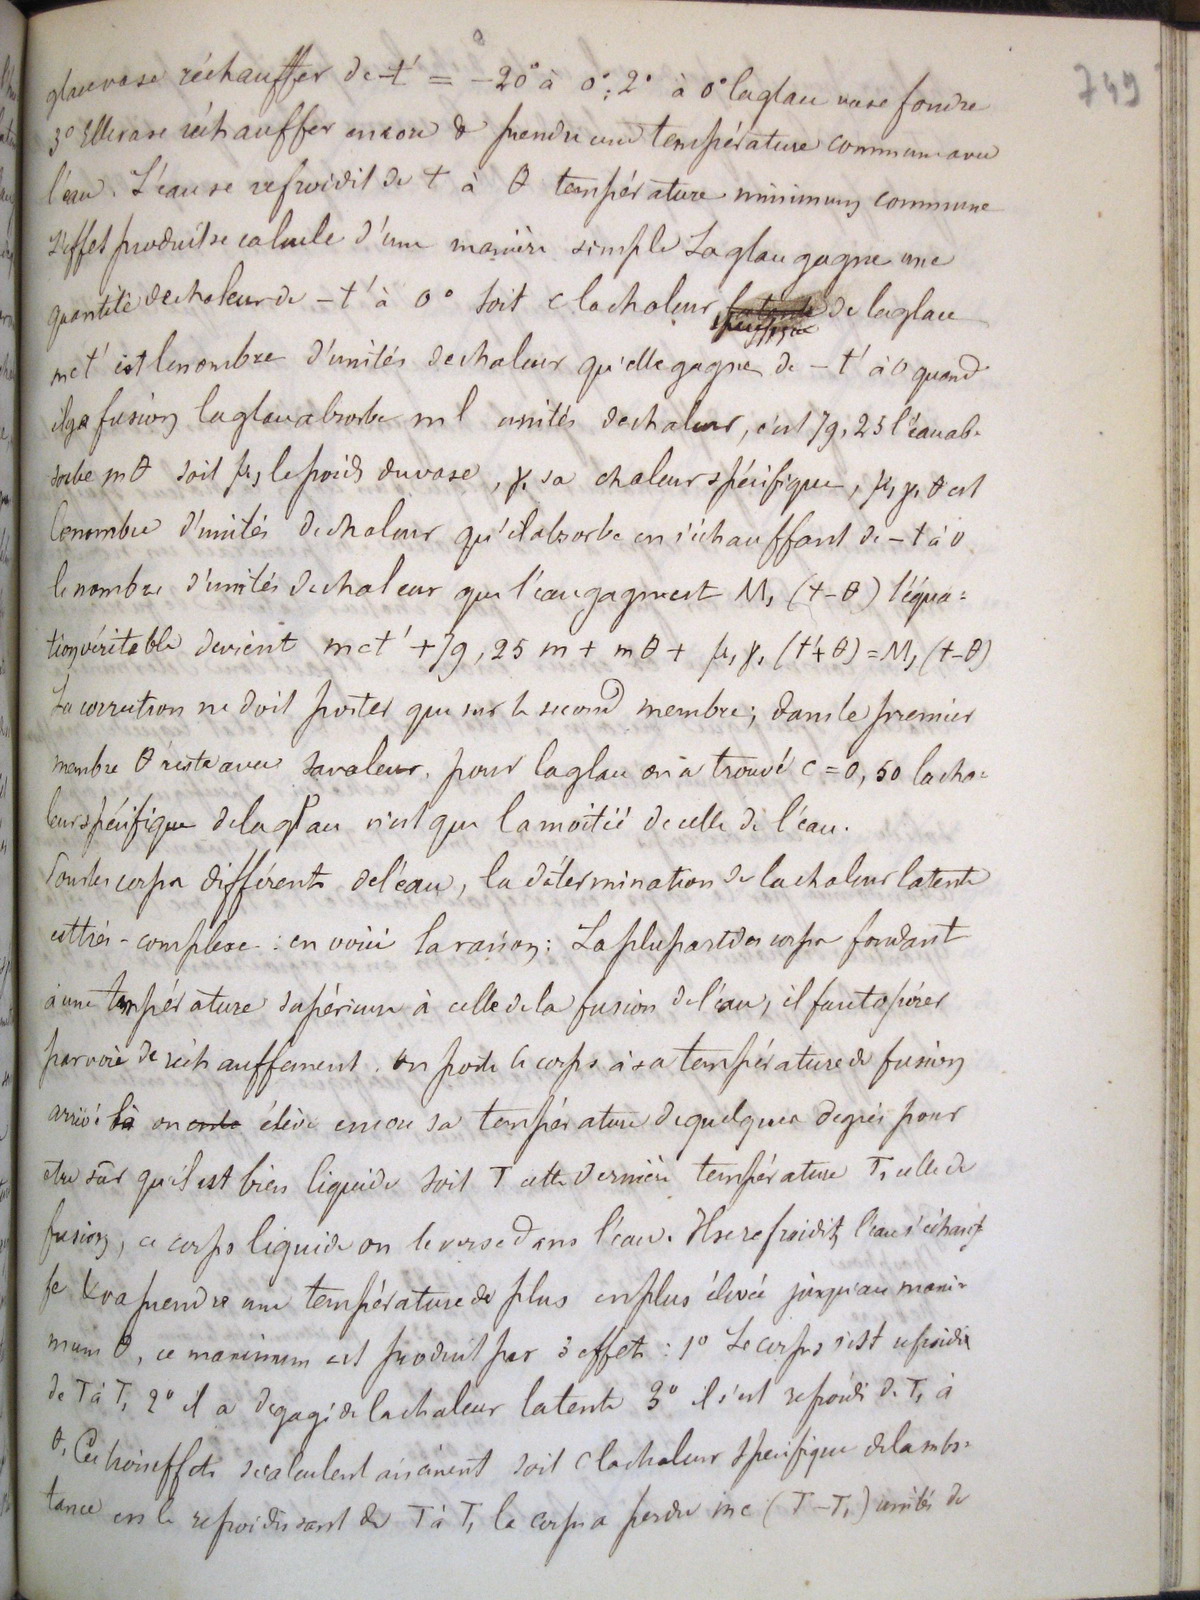 749
glace va se réchauffer de -t' = -20° à 0°; 2° à 0° la glace va se fondre
3° Elle va se réchauffer encore & prendre une température commune avec
l'eau. L'eau se refroidit de t à θ température minimum commune
L'effet produit se calcule d'une manière simple La glace gagne une
quantité de chaleur de -t' à 0° soit c la chaleur latente spécifique de la glace
mct' est le nombre d'unités de chaleur qu'elle gagne de -t' à 0 quand
il y a fusion la glace absorbe ml unités de chaleur, c'est 79,25 l'eau ab-
sorbe mθ soit μ, le poids du vase, γ, sa chaleur spécifique, μ, γ, θ est
le nombre d'unités de chaleur qu'il absorbe en s'échauffant de -t à 0
le nombre d'unités de chaleur que l'eau gagne est M, (t-θ) l'équa=
tion véritable devient mct' + 79,25 m + mθ + μ, γ, (t'+θ) = M, (t-θ)
La correction ne doit porter que sur le second membre; dans le premier
membre θ reste avec sa valeur. pour la glace on a trouvé c = 0,50 la cha=
leur spécifique de la glace n'est que la moitié de celle de l'eau.
Pour les corps différents de l'eau, la détermination de la chaleur latente
est très-complexe : en voici la raison; La plupart des corps fondant
à une température supérieure à celle de la fusion de l'eau, il faut opérer
par voie de réchauffement. On porte le corps à sa température de fusion
arrivé là on élève encore sa température de quelques degrés pour
être sûr qu'il est bien liquide soit T cette dernière température T, celle de
fusion, ce corps liquide on le verse dans l'eau. Il se refroidit, l'eau s'échauf
fe & va prendre une température de plus en plus élevée jusqu'au maxi-
mum θ, ce maximum est produit par 3 effets : 1° Le corps s'est refroidi
de T à T, 2° il a dégagé de la chaleur latente 3° il s'est refroidi de T, à
θ. Ces trois effets se calculent aisément soit c la chaleur spécifique de la subs=
tance en le refroidissant de T à T, le corps a perdu mc (T-T,) unités de